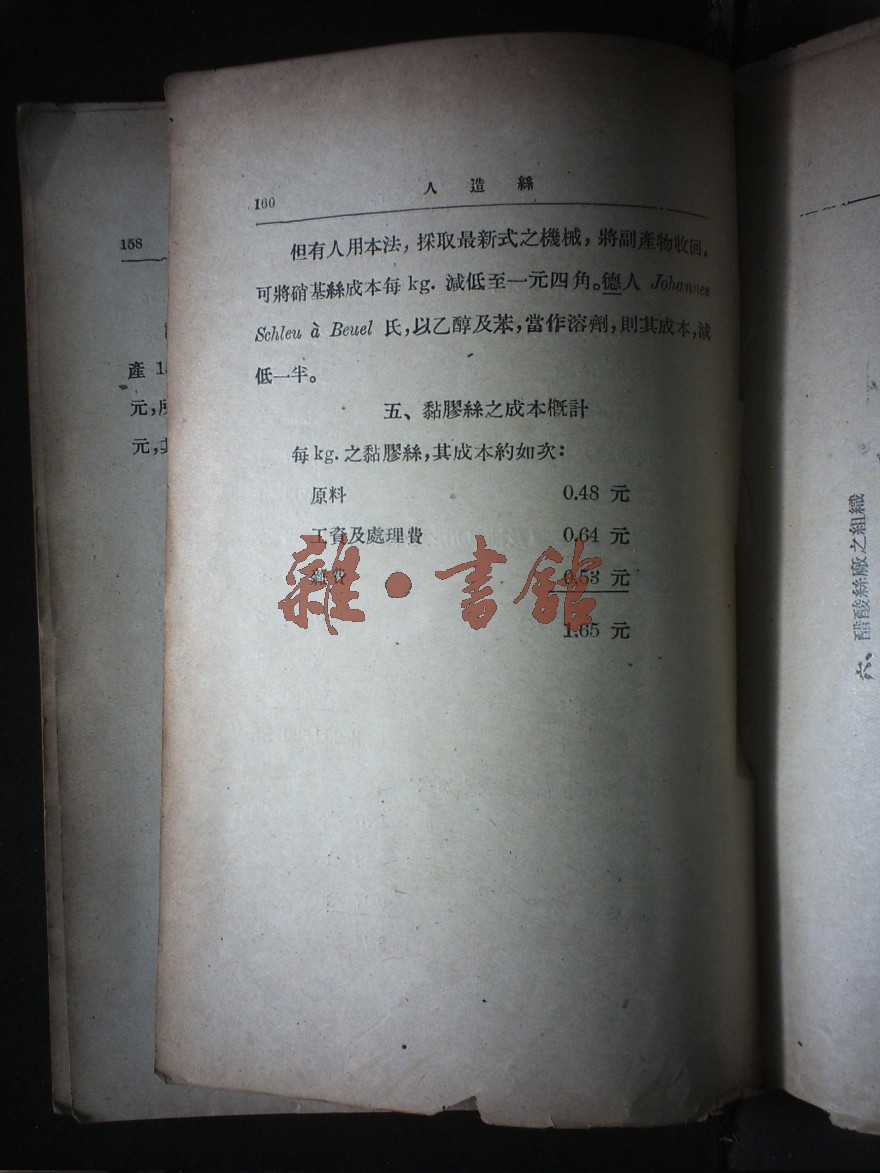 160
人造絲
但有人用本法，採取最新式之機械，將副產物收回，
可將硝基絲成本每 kg. 減低至一元四角。德人 Johannes
Schleu à Beuel 氏，以乙醇及苯，當作溶劑，則其成本，減
低一半。
五、黏膠絲之成本概計
每 kg. 之黏膠絲，其成本約如次：
原料 0.48 元
工資及處理費 0.64 元
雜費 0.53 元
1.65 元
雜·書館
158
產 1
元，
元，
六、醋酸絲廠之組織